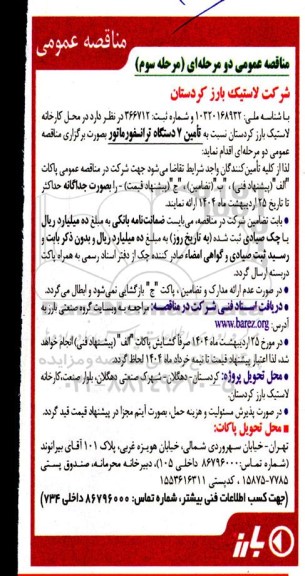 مناقصه عمومی
مناقصه عمومی دو مرحله‌ای (مرحله سوم)
شرکت لاستیک بارز کردستان
با شناسه ملی: ۱۰۳۲۰۱۶۸۹۲۲ و شماره ثبت: ۳۶۶۷۱۲ در نظر دارد در محل کارخانه
لاستیک بارز کردستان نسبت به تأمین ۷ دستگاه ترانسفورماتور بصورت برگزاری مناقصه
عمومی دو مرحله‌ای اقدام نماید:
لذا از کلیه تأمین‌کنندگان واجد شرایط تقاضا می‌شود جهت شرکت در مناقصه عمومی پاکات
"الف" (پیشنهاد فنی)، "ب" (تضامین)، "ج" (پیشنهاد قیمت) - را بصورت جداگانه حداکثر
تا تاریخ ۲۵ اردیبهشت ماه ۱۴۰۴ ارائه نمایند.
● بابت تضامین شرکت در مناقصه، می‌بایست ضمانت‌نامه بانکی به مبلغ ده میلیارد ریال
یا چک صیادی ثبت شده (به تاریخ روز) به مبلغ ده میلیارد ریال و بدون ذکر بابت و
رسید ثبت صیادی و گواهی امضاء صادر کننده چک از دفتر اسناد رسمی به همراه پاکت
دربسته ارسال گردد.
● در صورت عدم ارائه مدارک و تضامین، پاکت "ج" بازگشایی نمی‌شود و ابطال می‌گردد.
● دریافت اسناد فنی شرکت در مناقصه: مراجعه به وبسایت گروه صنعتی بارز به
آدرس: www.barez.org
● در مورخ ۲۵ اردیبهشت ماه ۱۴۰۴ صرفاً گشایش پاکات "الف" (پیشنهاد فنی) انجام خواهد
شد، لذا اعتبار پیشنهاد قیمت تا نیمه خرداد ماه ۱۴۰۴ لحاظ گردد.
● محل تحویل پروژه: کردستان - دهگلان - شهرک صنعتی دهگلان، بلوار صنعت، کارخانه
لاستیک بارز کردستان.
● در صورت پذیرش مسئولیت و هزینه حمل، بصورت آیتم مجزا در پیشنهاد قیمت قید گردد.
■ محل تحویل پاکات:
تهران - خیابان سهروردی شمالی، خیابان هویزه غربی، پلاک ۱۰۱ آقای بیرانوند
(شماره تماس: ۸۶۷۹۶۰۰۰ داخلی ۱۰۵)، دبیرخانه محرمانه، صندوق پستی
۱۵۸۷۵-۷۷۸۵، کدپستی ۱۵۵۳۶۱۶۳۱۱
(جهت کسب اطلاعات فنی بیشتر، شماره تماس: ۸۶۷۹۶۰۰۰ داخلی ۷۳۴)
بارز